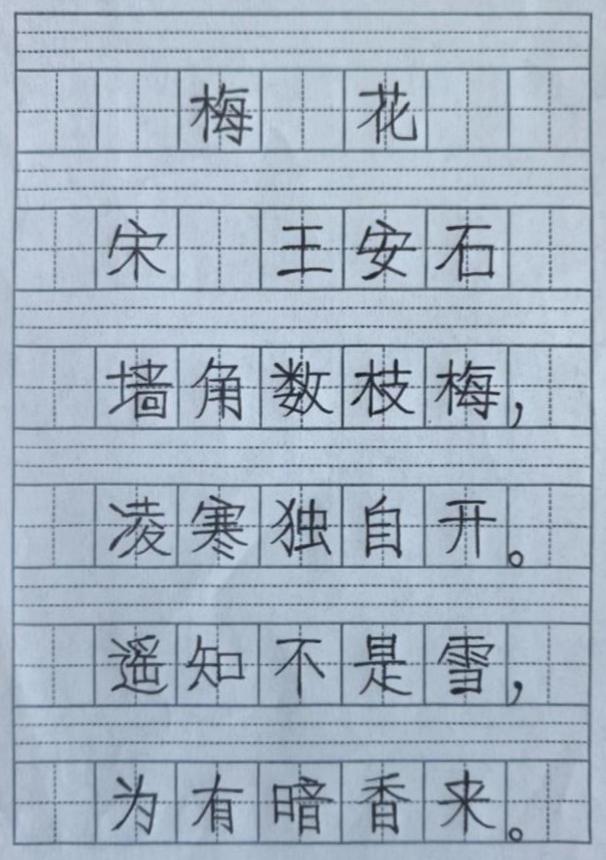 梅花
宋 王安石
墙角数枝梅，
凌寒独自开。
遥知不是雪，
为有暗香来。